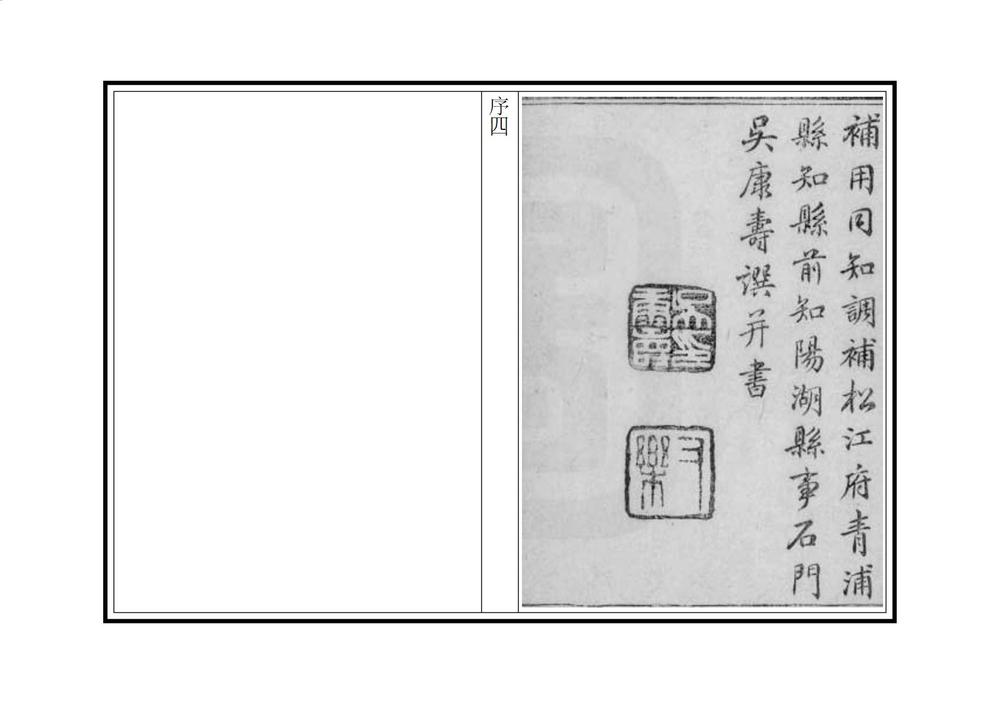 補用同知調補松江府青浦
縣知縣前知陽湖縣事石門
吳康壽譔并書
序四